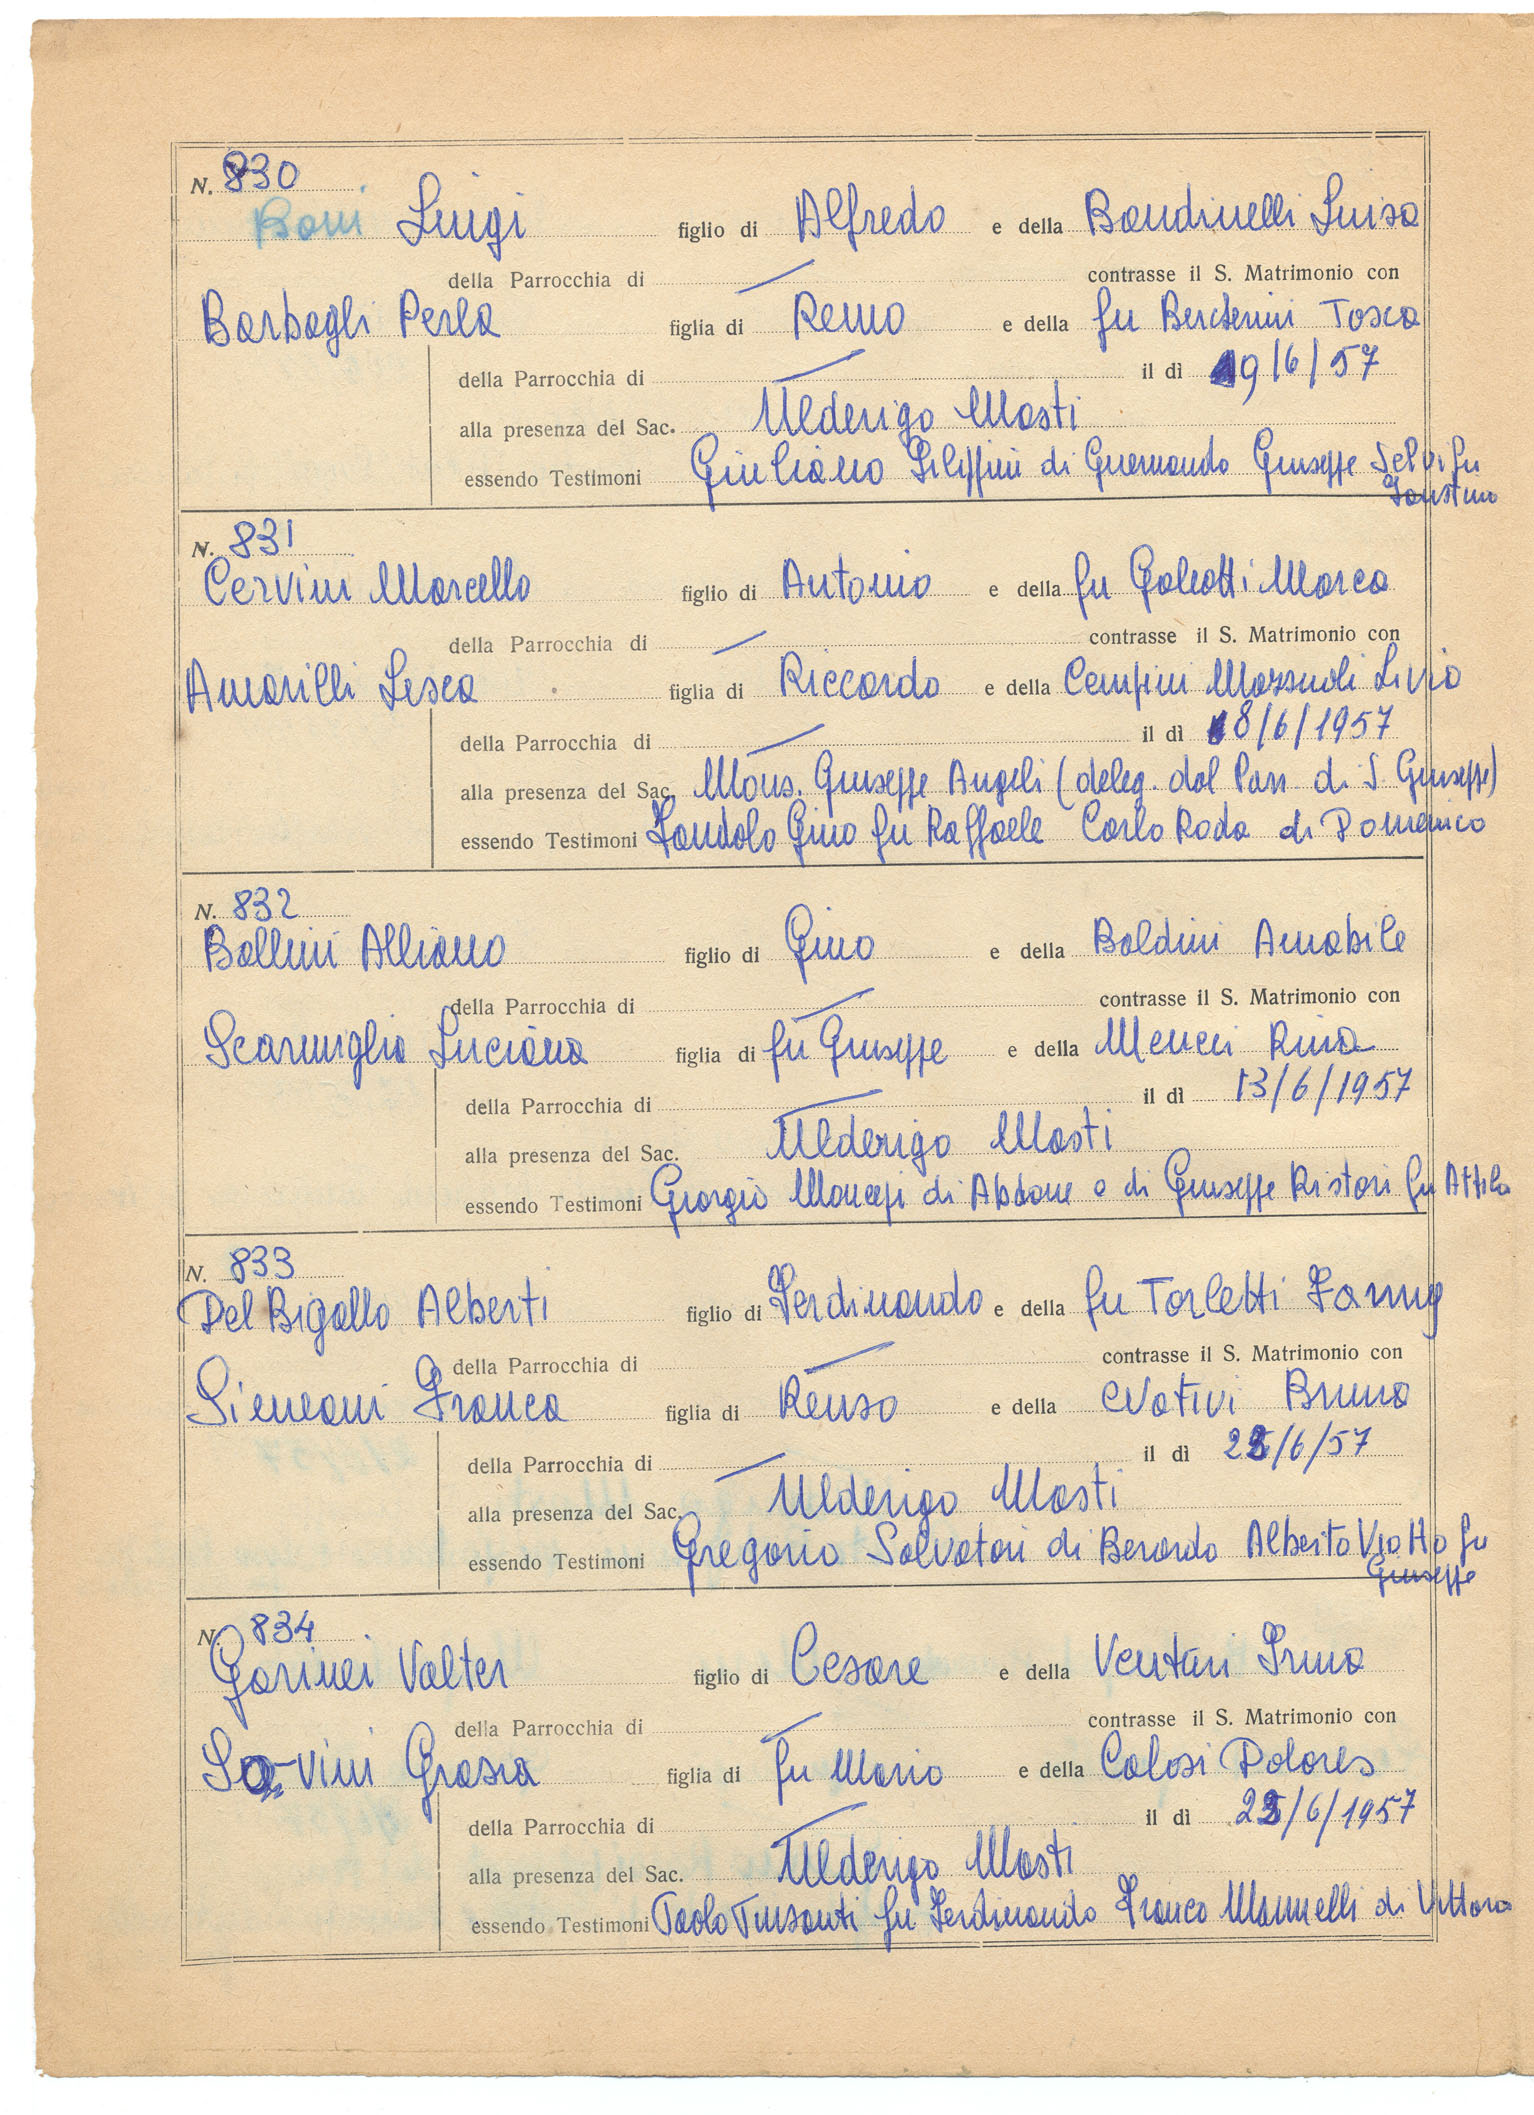 N. 830
Boni Luigi figlio di Alfredo e della Bandinelli Luisa
della Parrocchia di contrasse il S. Matrimonio con
Barbagli Perla figlia di Remo e della fu Tosca
della Parrocchia di il dì 19/6/57
alla presenza del Sac. Ulderigo Masti
essendo Testimoni Giuliano Filippini di Giuseppe Selvi fu
Faustino
N. 831
Cervini Marcello figlio di Antonio e della fu Galeotti Marca
della Parrocchia di contrasse il S. Matrimonio con
Amarilli Lesca figlia di Riccardo e della Cempini Mazzuoli Livia
della Parrocchia di il dì 8/6/1957
alla presenza del Sac. Mons. Giuseppe Angeli (deleg. dal Parr. di S. Giuseppe)
essendo Testimoni Landolo Gino fu Raffaele Carlo Roda di Domenico
N. 832
Ballini Alliano figlio di Gino e della Baldini Amabile
della Parrocchia di contrasse il S. Matrimonio con
Scarmiglia Luciana figlia di fu Giuseppe e della Mencci Rina
della Parrocchia di il dì 13/6/1957
alla presenza del Sac. Ulderigo Masti
essendo Testimoni Giorgio di Abdone e di Giuseppe Ristori fu Attilio
N. 833
Del Bigallo Alberti figlio di Ferdinando e della fu Torletti Fanny
della Parrocchia di contrasse il S. Matrimonio con
Franca figlia di Renso e della Nativi Bruna
della Parrocchia di il dì /6/57
alla presenza del Sac. Ulderigo Masti
essendo Testimoni Gregorio Salvatori di Berardo Alberto Viotto fu
Giuseppe
N. 834
Garinei Valter figlio di Cesare e della Venturi Irma
della Parrocchia di contrasse il S. Matrimonio con
Savini Grazia figlia di fu Mario e della Calosi Dolores
della Parrocchia di il dì /6/1957
alla presenza del Sac. Ulderigo Masti
essendo Testimoni Paolo Tinsanti fu Ferdinando Franco Mannelli di Vittorio